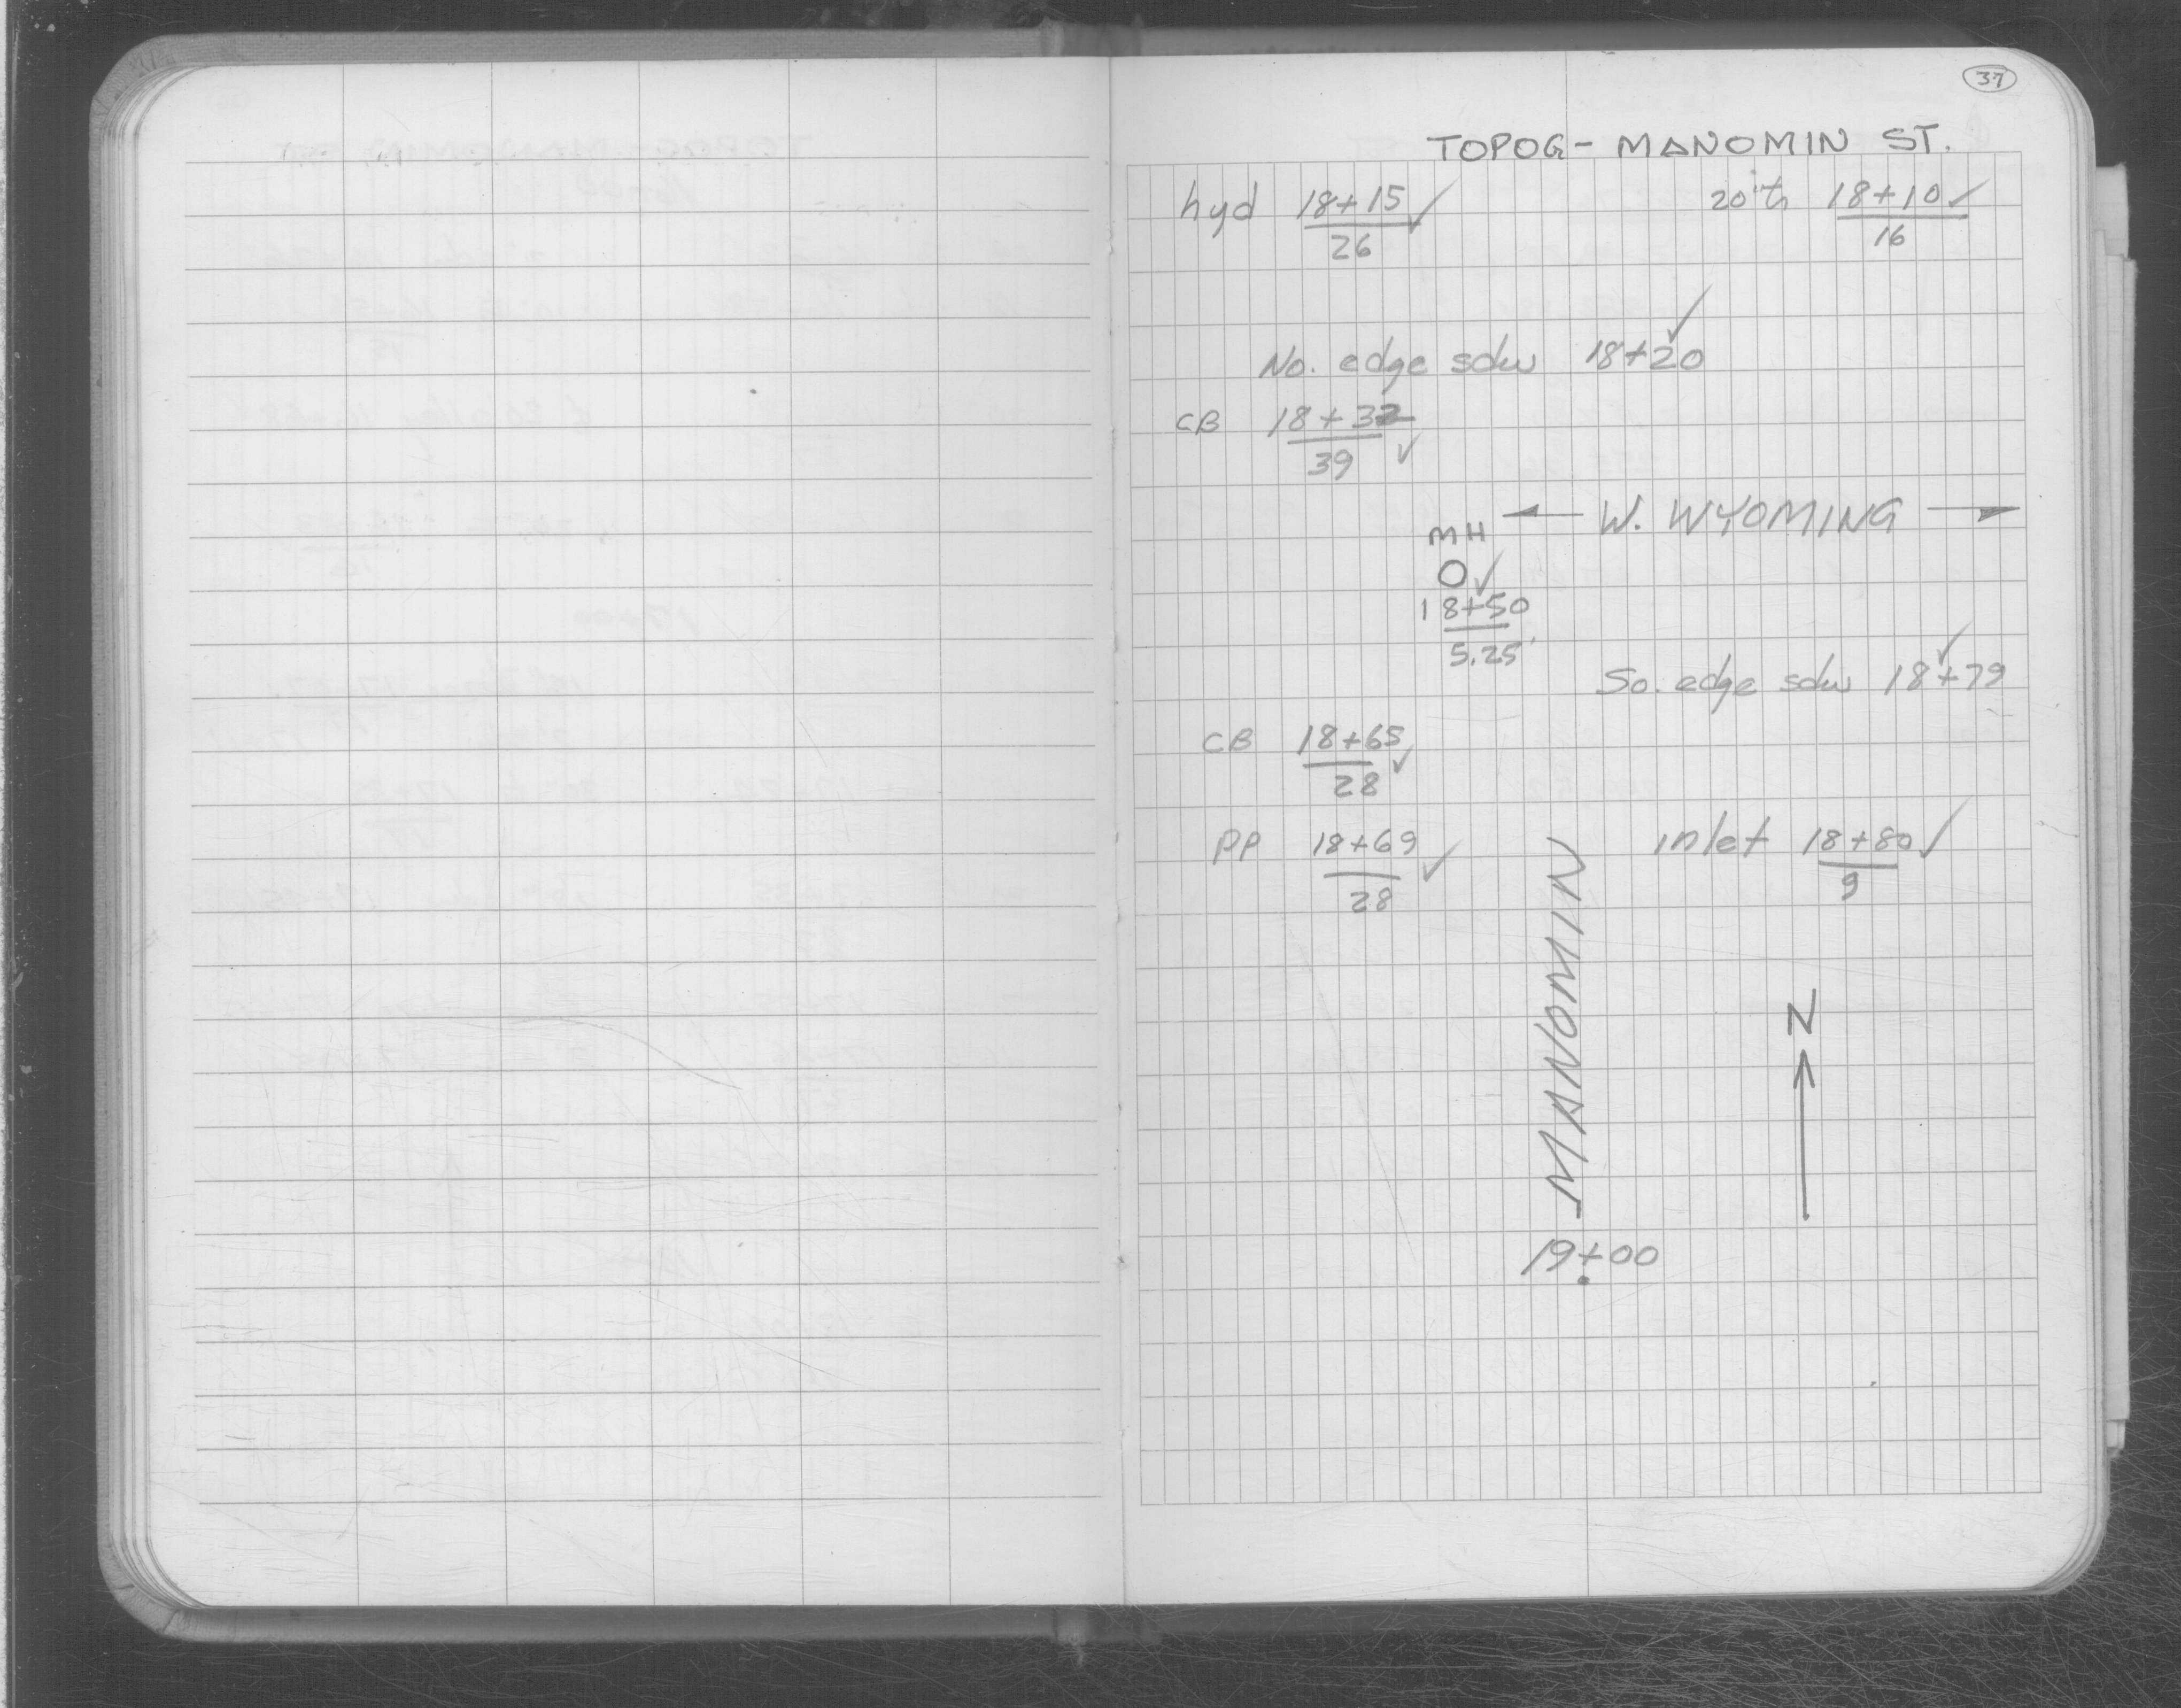 37
TOPOG - MANOMIN ST.
hyd 18+15 ✓ 18+10 ✓
26 16
No. edge sdw 18+20 ✓
CB 18+32
39 ✓
← W. WYOMING →
MH
O ✓
18+50
5.25'
So. edge sdw 18+79 ✓
CB 18+65 ✓
28
PP 18+69 ✓ inlet 18+80 ✓
28 9
MANOMIN
N
19+00